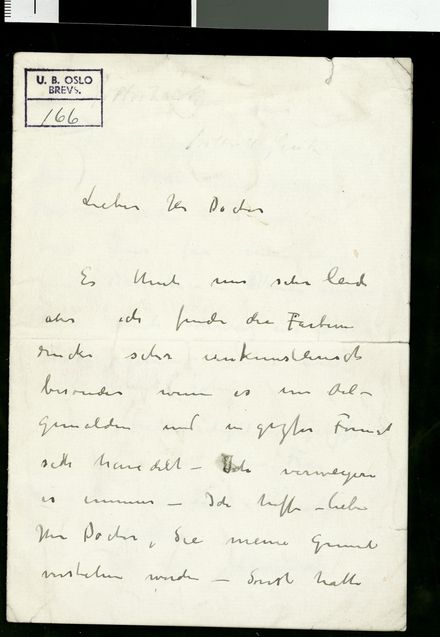 U. B. OSLO
BREVS.
166
Lieber Herr Doctor
Es thut mir sehr leid
aber ich finde die Farben
drucke sehr unkünstlerisch
besonders wenn es um Oel-
gemälden und in großer Format
sich handelt – Ich verweigere
es immer – Ich hoffe – lieber
Herr Doctor, Sie meine Grund
verstehen werden – Sonst hatte